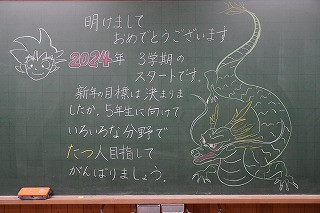 明けまして
おめでとうございます
2024年 3学期の
スタートです。
新年の目標は決まりま
したか。5年生に向けて
いろいろな分野で
たつ人目指して
がんばりましょう。